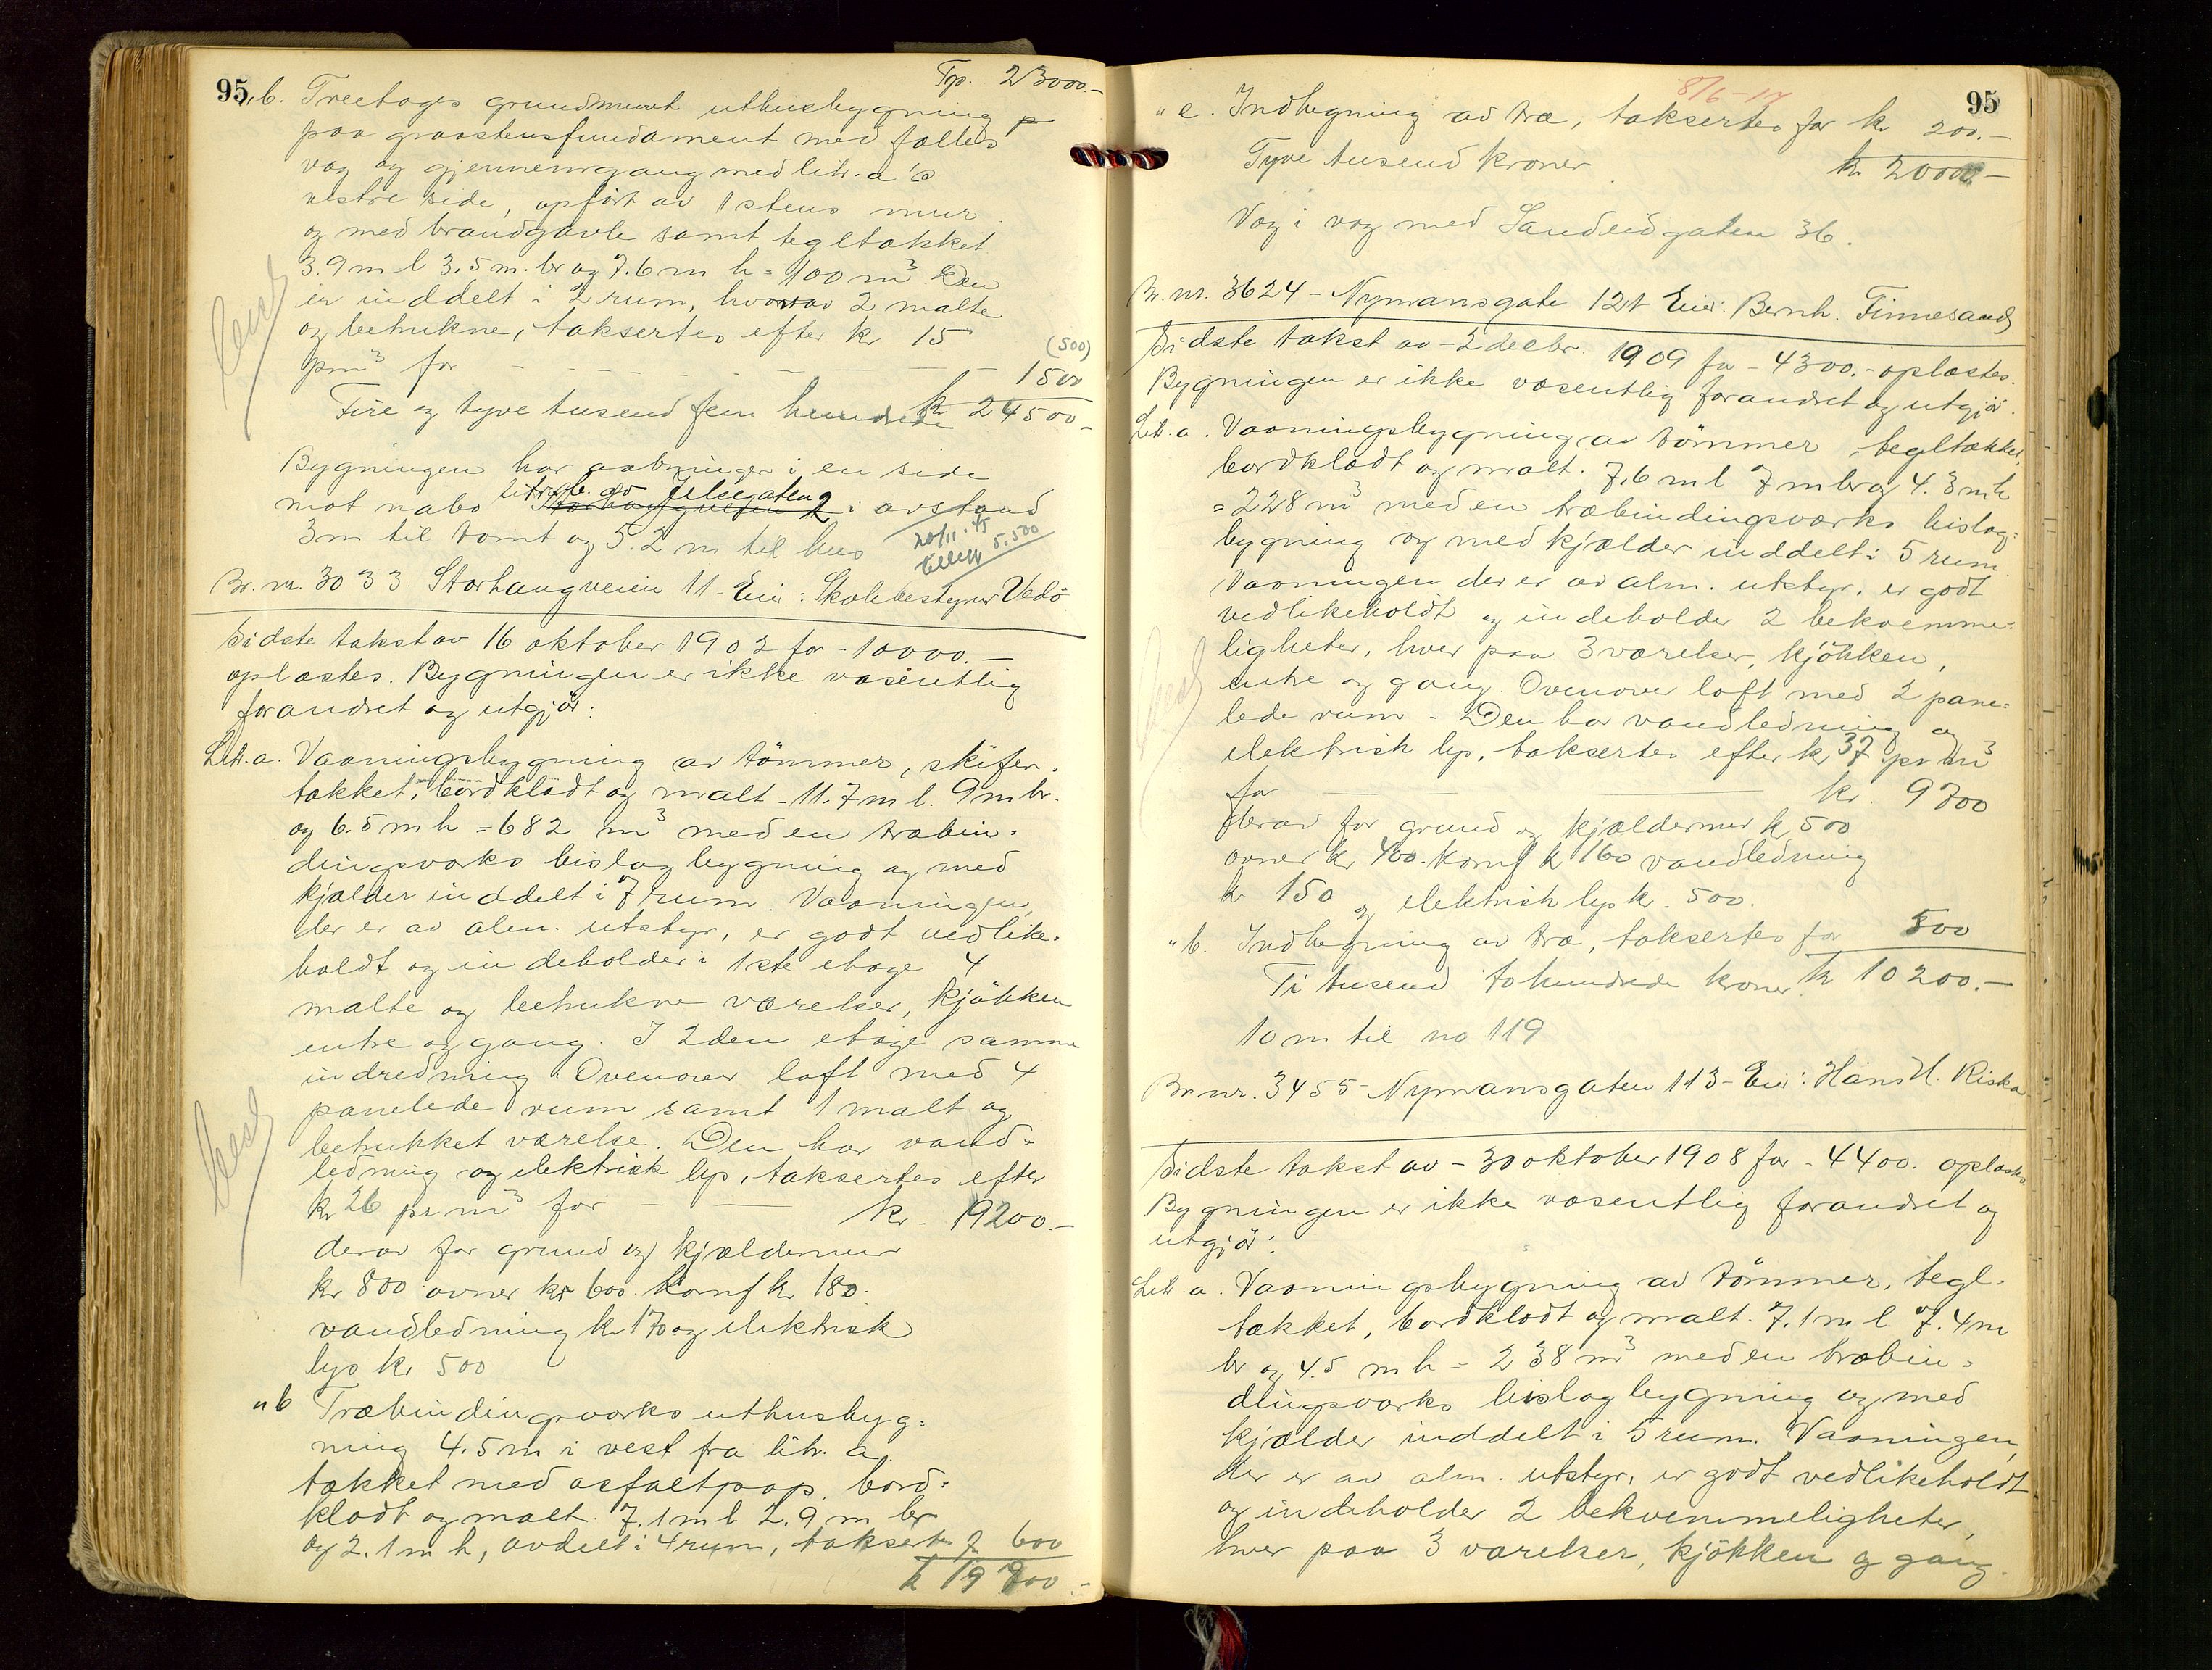 95
Tp. 23000.-
„b. Treetages grundmuret uthusbygning p
paa graastensfundament med fælles
væg og gjennemgang med litr. a's
vestre side, opført av 1 stens mur
og med brandgavle samt tegltækket
3.9 m l 3.5 m. br og 7.6 m h = 100 m³ Den
er inddelt i 2 rum, hvorav 2 malte
og betrukne, taksertes efter kr 15
(500)
pr m³ for - - - - - - 1500
Fire og tyve tusend fem hundrede kr 24500-
Bygningen har aabninger i en side
litr. b. av Jelsegaten 2
mot nabo Storhaugveien 2 i avstand
3 m til tomt og 5.2 m til hus
20/11.45
5.500
Br. nr. 3033. Storhaugveien 11 - Eier: Skolebestyrer Vedø
Sidste takst av 16 oktober 1902 for - 10000.-
oplæstes. Bygningen er ikke væsentlig
forandret og utgjør:
Litr. a. Vaaningsbygning av tømmer, skifer-
tækket, bordklædt og malt - 11.7 m l. 9 m br.
og 6.5 m h = 682 m³ med en træbin=
dingsværks bislagbygning og med
kjælder inddelt i 7 rum. Vaaningen,
der er av alm. utstyr, er godt vedlike=
holdt og indeholder i 1ste etage 4
malte og betrukne værelser, kjøkken
entre og gang. I 2den etage samme
indredning. Ovenover loft med 4
panelede rum samt 1 malt og
betrukket værelse. Den har vand=
ledning og elektrisk lys, taksertes efter
kr 26 pr m³ for - - kr. 19200.-
derav for grund og kjældermur
kr 800 ovner kr 600. Komf kr 180.
vandledning kr 170 og elektrisk
lys kr 500
„b Træbindingsværks uthusbyg=
ning 4.5 m i vest fra litr. a.
tækket med asfaltpap, bord=
klædt og malt. 7.1 m l 2.9 m br
og 2.1 m h, avdelt i 4 rum, taksertes for 600
kr 19800.-
95
8/6-17
„c. Indhegning av træ, taksertes for kr 200.-
Tyve tusend kroner kr 20000-
Væg i væg med Sandeidgaten 36.
Br. nr. 3624 - Nymansgate 121 Eier: Bernh. Finnesand
Sidste takst av - 2 decbr. 1909 for - 4300.- oplæstes.
Bygningen er ikke væsentlig forandret og utgjør.
Litr. a. Vaaningsbygning av tømmer, tegltækket,
bordklædt og malt. 7.6 m l 7 m br og 4.3 m h
= 228 m³ med en træbindingsværks bislag=
bygning og med kjælder inddelt i 5 rum.
Vaaningen der er av alm. utstyr, er godt
vedlikeholdt og indeholder 2 bekvemme=
ligheter, hver paa 3 værelser, kjøkken,
entre og gang. Ovenover loft med 2 pane=
lede rum - Den har vandledning og
elektrisk lys, taksertes efter kr 37 pr m³
for - - kr. 9700
derav for grund og kjældermur kr 500
ovner kr 400. Komf kr 160 vandledning
kr 150 og elektrisk lys kr. 500.
„b. Indhegning av træ, taksertes for 500
Ti tusend tohundrede kroner kr 10200.-
10 m til no 119
Br nr. 3455 - Nymansgaten 113 - Eier: Hans H. Riska
Sidste takst av - 30 oktober 1908 for - 4400. oplæstes
Bygningen er ikke væsentlig forandret og
utgjør:
Litr. a. Vaaningsbygning av tømmer, tegl=
tækket, bordklædt og malt. 7.1 m l 7.4 m
br og 4.5 m h = 238 m³ med en træbin=
dingsværks bislagbygning og med
kjælder inddelt i 5 rum. Vaaningen,
der er av alm. utstyr, er godt vedlikeholdt
og indeholder 2 bekvemmeligheter,
hver paa 3 værelser, kjøkken og gang.